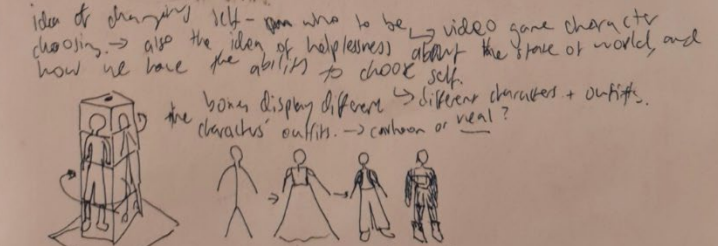 idea of changing self - who to be → video game character
choosing. → also the idea of helplessness about the state of world, and
how we have the ability to choose self.
the boxes display different → different characters + outfits.
characters' outfits. → cartoon or real?